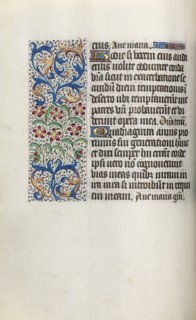 eius. Ave maria.
Hodie si vocem eius audi
eritis nolite obdurare corda
vestra sicut in exacerbatione se
cundum diem temptationis in
deserto ubi temptaverunt me
patres vestri probaverunt et vi
derunt opera mea. Dominus tecum.
Quadraginta annis pro
ximus fui generationi huic
et dixi semper hii errant corde
ipsi vero non cognoverunt
vias meas quibus iuravi in
ira mea si introibunt in requi
em meam. Ave maria gra.